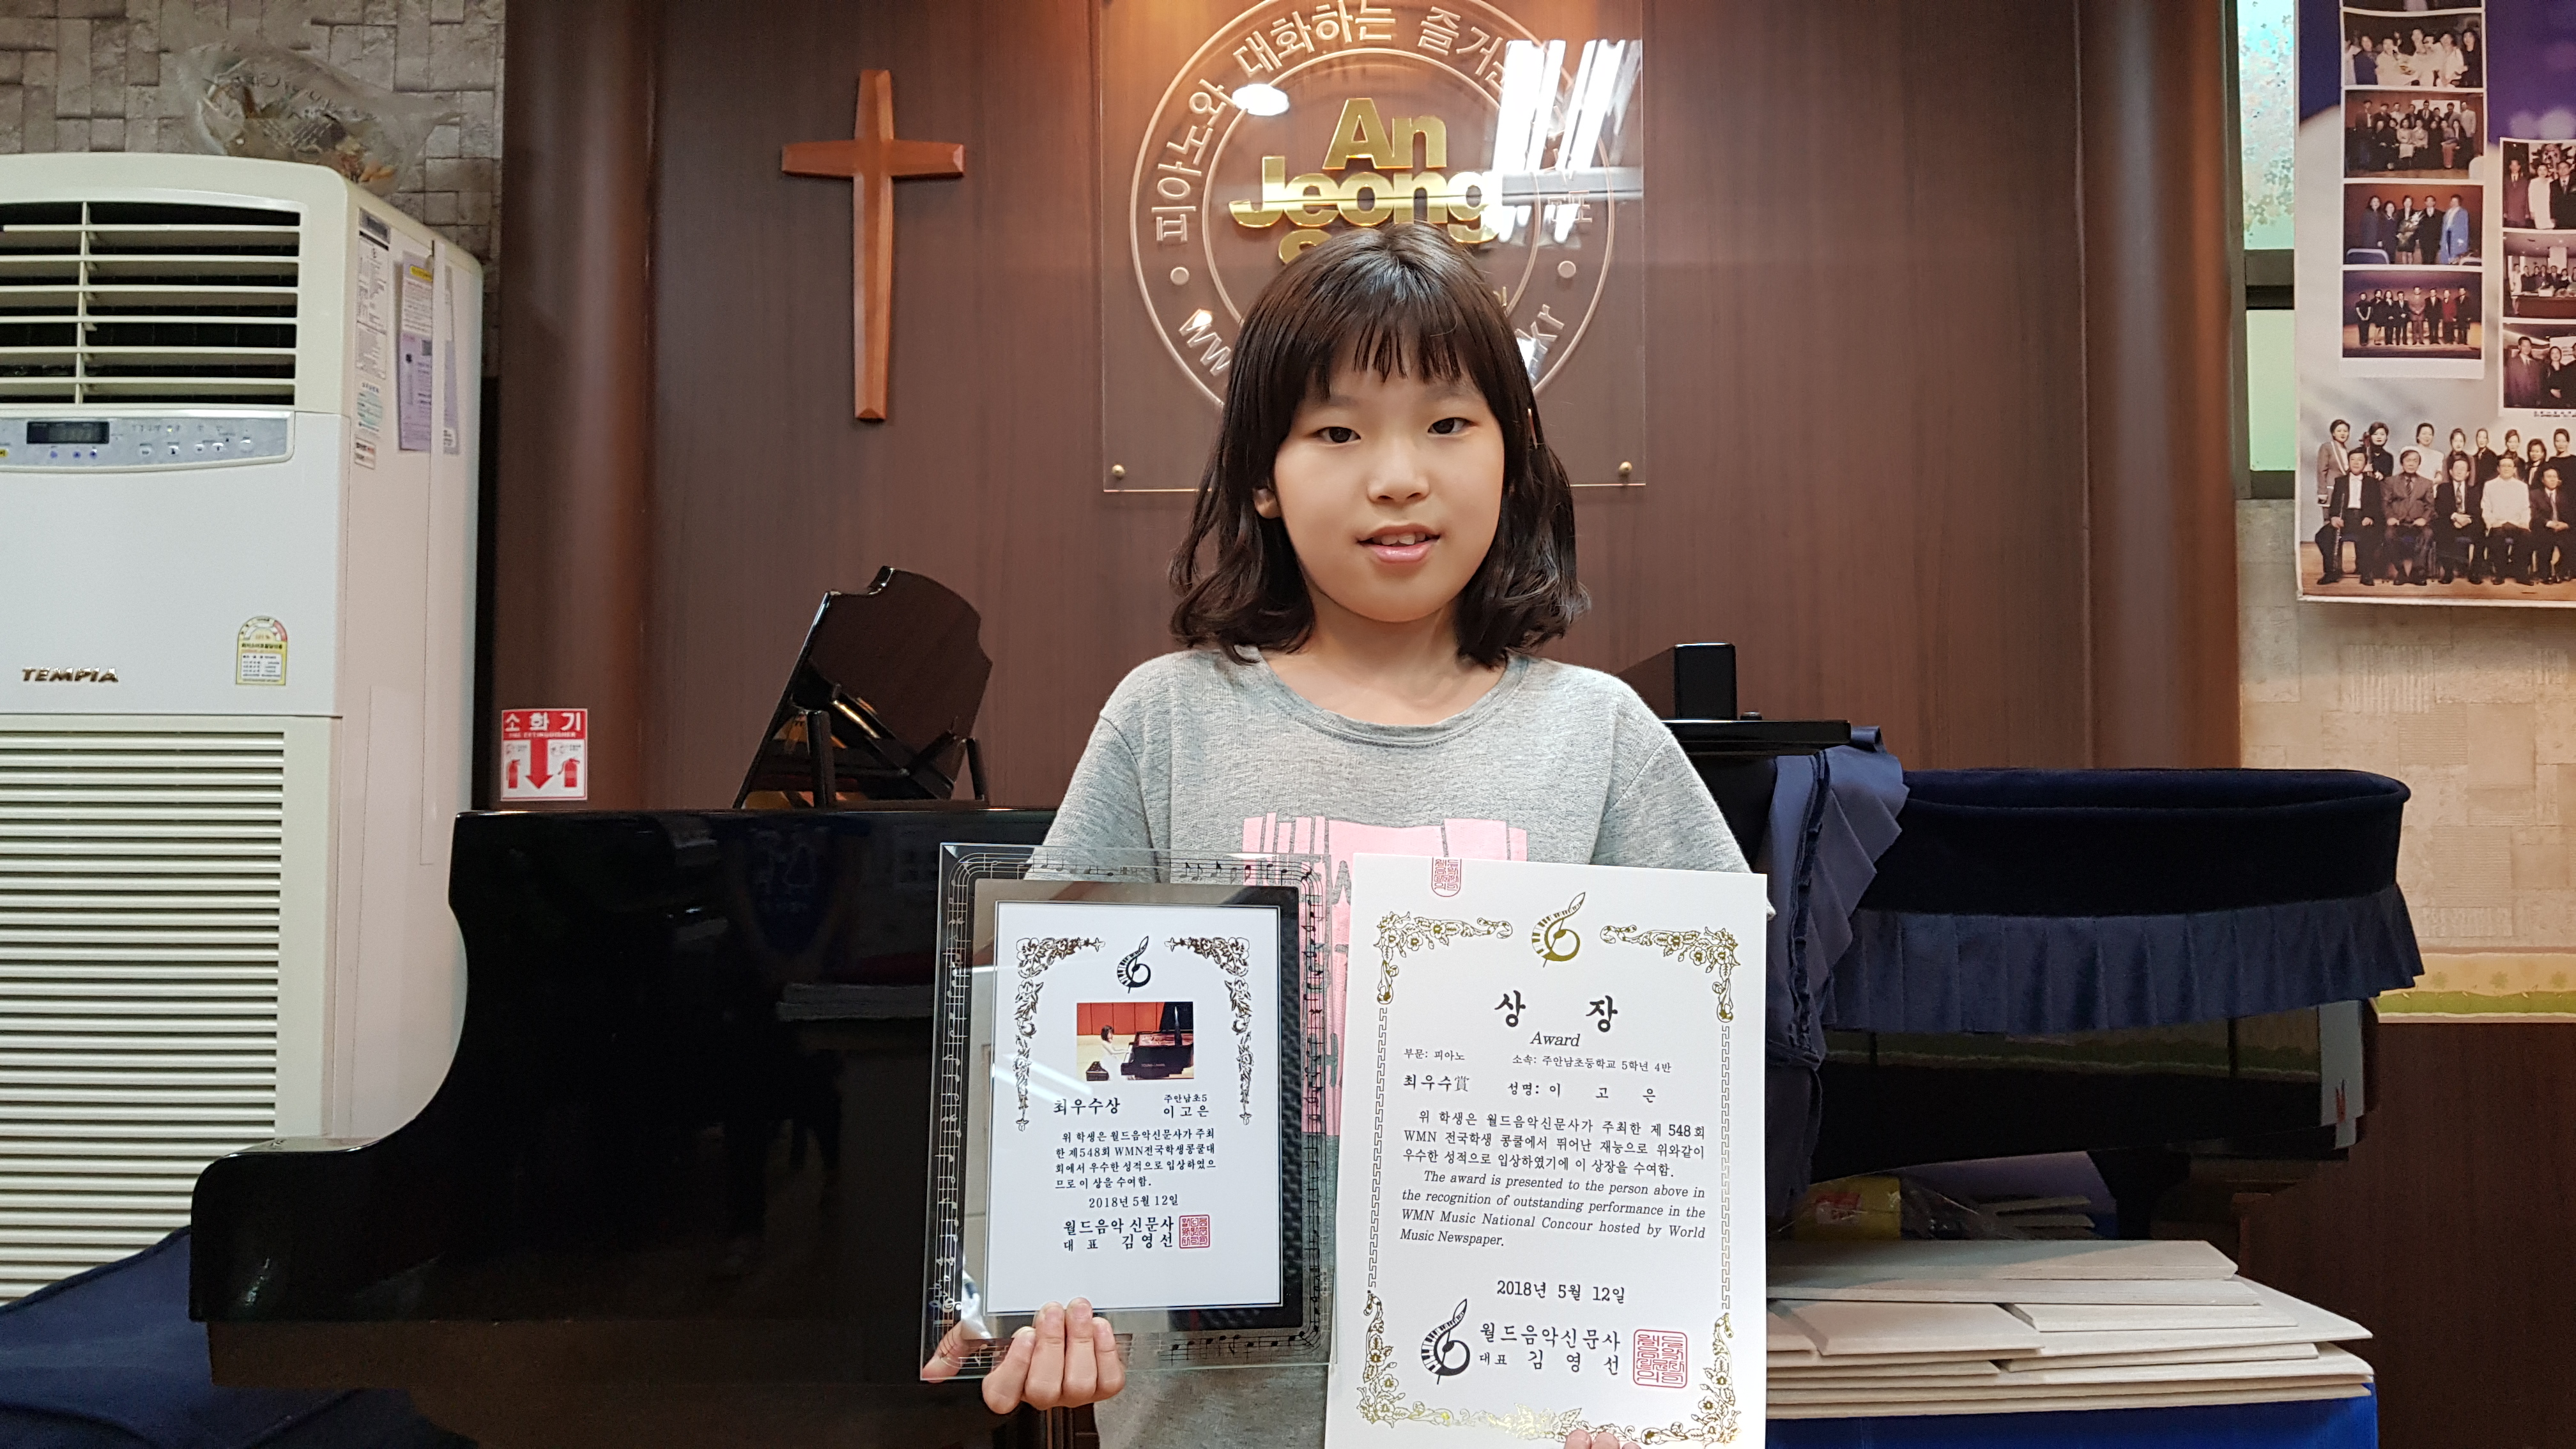 피아노와 대화하는
An
Jeong
TEMPIA
소화기
FIRE EXTINGUISHER
최우수상
주안남초5
이고은
위 학생은 월드음악신문사가 주최
한 제548회 WMN전국학생콩쿨대
회에서 우수한 성적으로 입상하였으
므로 이 상을 수여함.
2018년 5월 12일
월드음악신문사
대 표 김영선
상 장
Award
부문: 피아노 소속: 주안남초등학교 5학년 4반
최우수賞 성명: 이 고 은
위 학생은 월드음악신문사가 주최한 제 548회
WMN 전국학생 콩쿨에서 뛰어난 재능으로 위와같이
우수한 성적으로 입상하였기에 이 상장을 수여함.
The award is presented to the person above in
the recognition of outstanding performance in the
WMN Music National Concour hosted by World
Music Newspaper.
2018년 5월 12일
월드음악신문사
대표 김 영 선